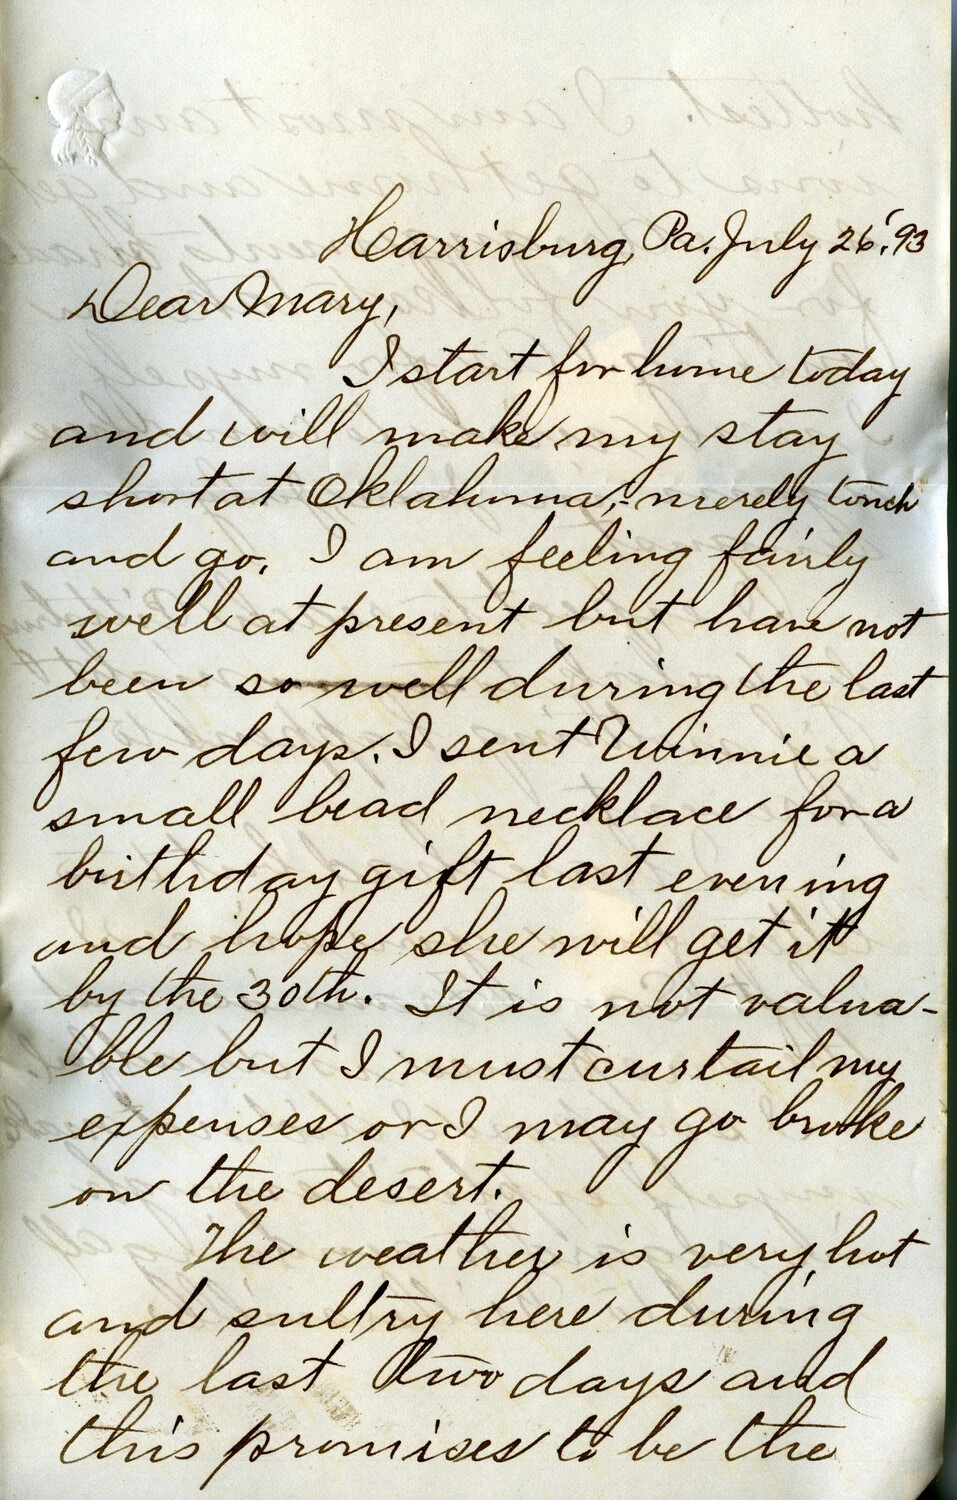 Harrisburg, Pa. July 26, '93
Dear Mary,
I start for home today
and will make my stay
short at Oklahoma; - merely touch
and go. I am feeling fairly
well at present but have not
been so well during the last
few days. I sent Winnie a
small bead necklace for a
birthday gift last evening
and hope she will get it
by the 30th. It is not valua-
ble but I must curtail my
expenses or I may go broke
on the desert.
The weather is very hot
and sultry here during
the last two days and
this promises to be the